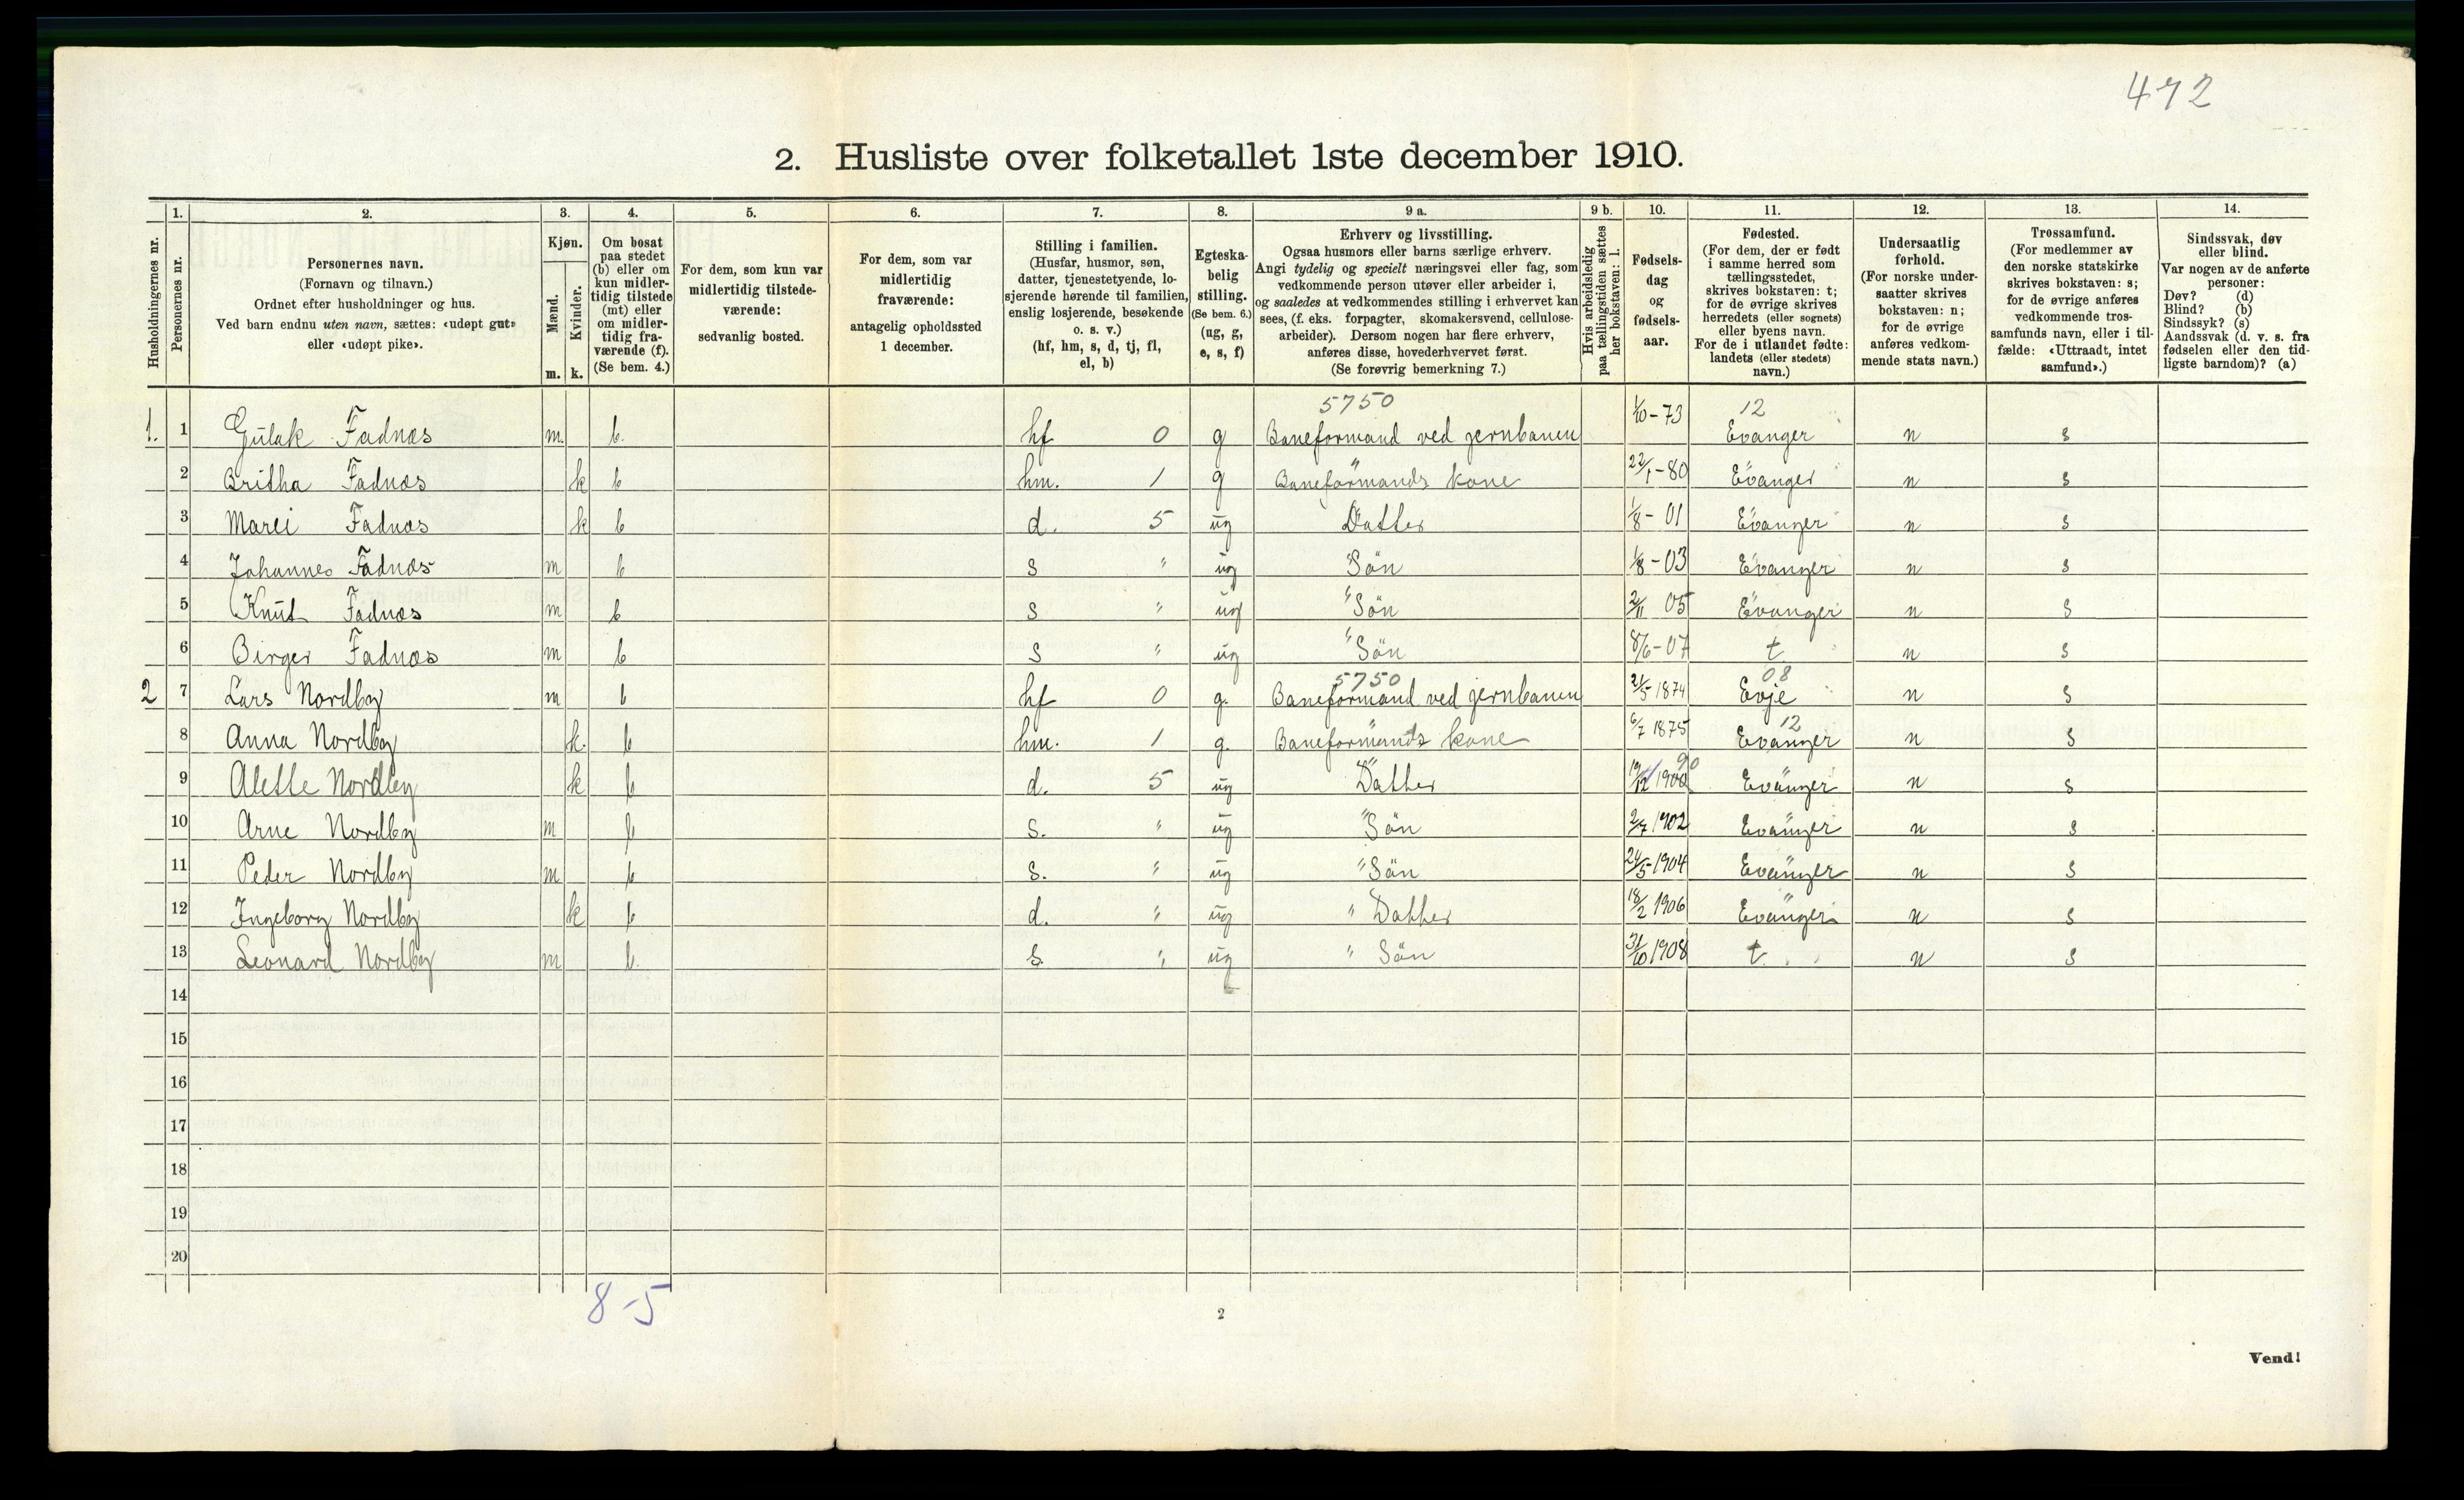 472
2. Husliste over folketallet 1ste december 1910.
Husholdningernes nr.
1. Personernes nr.
2. Personernes navn.
(Fornavn og tilnavn.)
Ordnet efter husholdninger og hus.
Ved barn endnu uten navn, sættes: «udøpt gut»
eller «udøpt pike».
3. Kjøn.
Mænd. m.
Kvinder. k.
4. Om bosat
paa stedet
(b) eller om
kun midler-
tidig tilstede
(mt) eller
om midler-
tidig fra-
værende (f).
(Se bem. 4.)
5. For dem, som kun var
midlertidig tilstede-
værende:
sedvanlig bosted.
6. For dem, som var
midlertidig
fraværende:
antagelig opholdssted
1 december.
7. Stilling i familien.
(Husfar, husmor, søn,
datter, tjenestetyende, lo-
sjerende hørende til familien,
enslig losjerende, besøkende
o. s. v.)
(hf, hm, s, d, tj, fl,
el, b)
8. Egteska-
belig
stilling.
(Se bem. 6.)
(ug, g,
e, s, f)
9 a. Erhverv og livsstilling.
Ogsaa husmors eller barns særlige erhverv.
Angi tydelig og specielt næringsvei eller fag, som
vedkommende person utøver eller arbeider i,
og saaledes at vedkommendes stilling i erhvervet kan
sees, (f. eks. forpagter, skomakersvend, cellulose-
arbeider). Dersom nogen har flere erhverv,
anføres disse, hovederhvervet først.
(Se forøvrig bemerkning 7.)
9 b. Hvis arbeidsledig
paa tællingstiden sættes
her bokstaven: l.
10. Fødsels-
dag
og
fødsels-
aar.
11. Fødested.
(For dem, der er født
i samme herred som
tællingsstedet,
skrives bokstaven: t;
for de øvrige skrives
herredets (eller sognets)
eller byens navn.
For de i utlandet fødte:
landets (eller stedets)
navn.)
12. Undersaatlig
forhold.
(For norske under-
saatter skrives
bokstaven: n;
for de øvrige
anføres vedkom-
mende stats navn.)
13. Trossamfund.
(For medlemmer av
den norske statskirke
skrives bokstaven: s;
for de øvrige anføres
vedkommende tros-
samfunds navn, eller i til-
fælde: «Uttraadt, intet
samfund».)
14. Sindssvak, døv
eller blind.
Var nogen av de anførte
personer:
Døv? (d)
Blind? (b)
Sindssyk? (s)
Aandssvak (d. v. s. fra
fødselen eller den tid-
ligste barndom)? (a)
5750 12
1. 1 Gulak Fadnæs m. b. hf 0 g Baneformand ved jernbanen 1/10-73 Evanger n s
2 Britha Fadnæs k b hm. 1 g Baneformands kone 22/1-80 Evanger n s
3 Marei Fadnæs k b d. 5 ug Datter 1/8-01 Evanger n s
4 Johannes Fadnæs m b s " ug Sön 1/8-03 Evanger n s
5 Knut Fadnæs m b s " ug " Sön 2/11 05 Evanger n s
6 Birger Fadnæs m b s " ug " Sön 8/6-07 t n s
5750 08
2 7 Lars Nordby m b hf 0 g. Baneformand ved jernbanen 21/5 1874 Evje n s
12
8 Anna Nordby k. b hm. 1 g. Baneformands kone 6/7 1875 Evanger n s
90
9 Alette Nordby k b d. 5 ug Datter 19/12 1900 Evanger n s
10 Arne Nordby m b s. " ug " Sön 2/7 1902 Evanger n s
11 Peder Nordby m b s. " ug " Sön 24/5-1904 Evanger n s
12 Ingeborg Nordby k b d. " ug " Datter 18/2 1906 Evanger n s
13 Leonard Nordby m b. s. " ug " Sön 31/10 1908 t. n s
14
15
16
17
18
19
20
8-5
2
Vend!